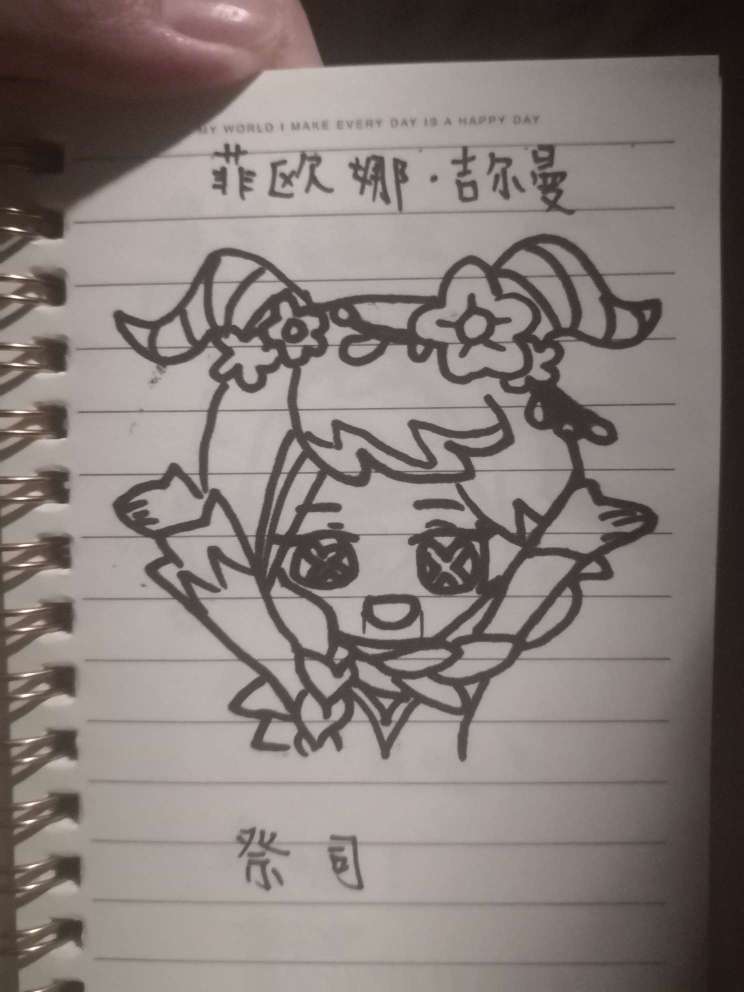 MY WORLD I MAKE EVERY DAY IS A HAPPY DAY
菲欧娜·吉尔曼
祭司